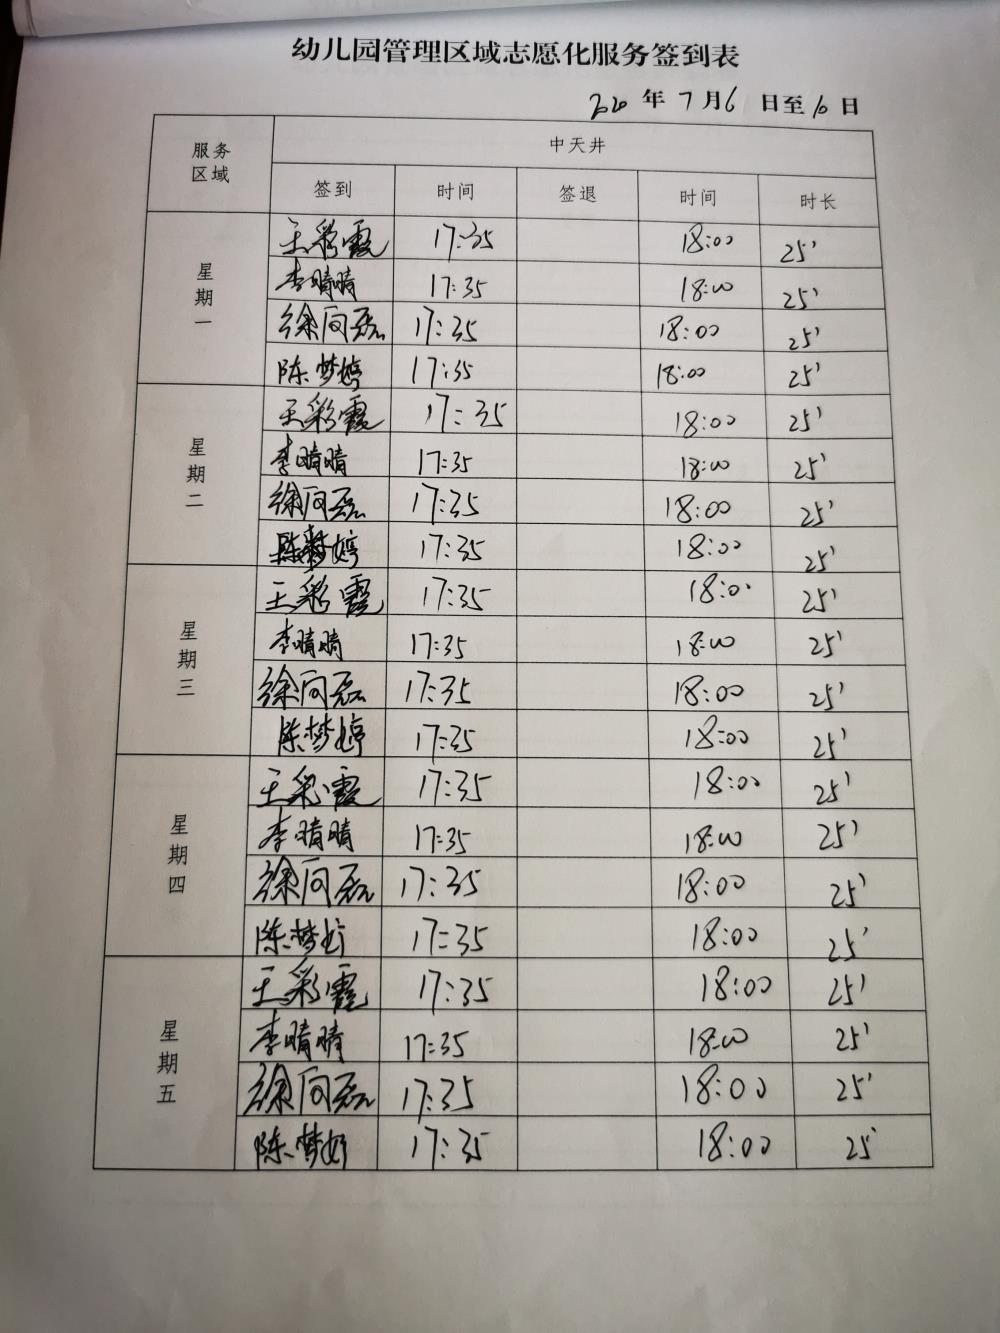 幼儿园管理区域志愿化服务签到表
2020 年 7 月 6 日至 10 日
服务区域 中天井
签到 时间 签退 时间 时长
星期一
王彩霞 17:35 18:00 25'
李晴晴 17:35 18:00 25'
徐向磊 17:35 18:00 25'
陈梦婷 17:35 18:00 25'
星期二
王彩霞 17:35 18:00 25'
李晴晴 17:35 18:00 25'
徐向磊 17:35 18:00 25'
陈梦婷 17:35 18:00 25'
星期三
王彩霞 17:35 18:00 25'
李晴晴 17:35 18:00 25'
徐向磊 17:35 18:00 25'
陈梦婷 17:35 18:00 25'
星期四
王彩霞 17:35 18:00 25'
李晴晴 17:35 18:00 25'
徐向磊 17:35 18:00 25'
陈梦婷 17:35 18:00 25'
星期五
王彩霞 17:35 18:00 25'
李晴晴 17:35 18:00 25'
徐向磊 17:35 18:00 25'
陈梦婷 17:35 18:00 25'